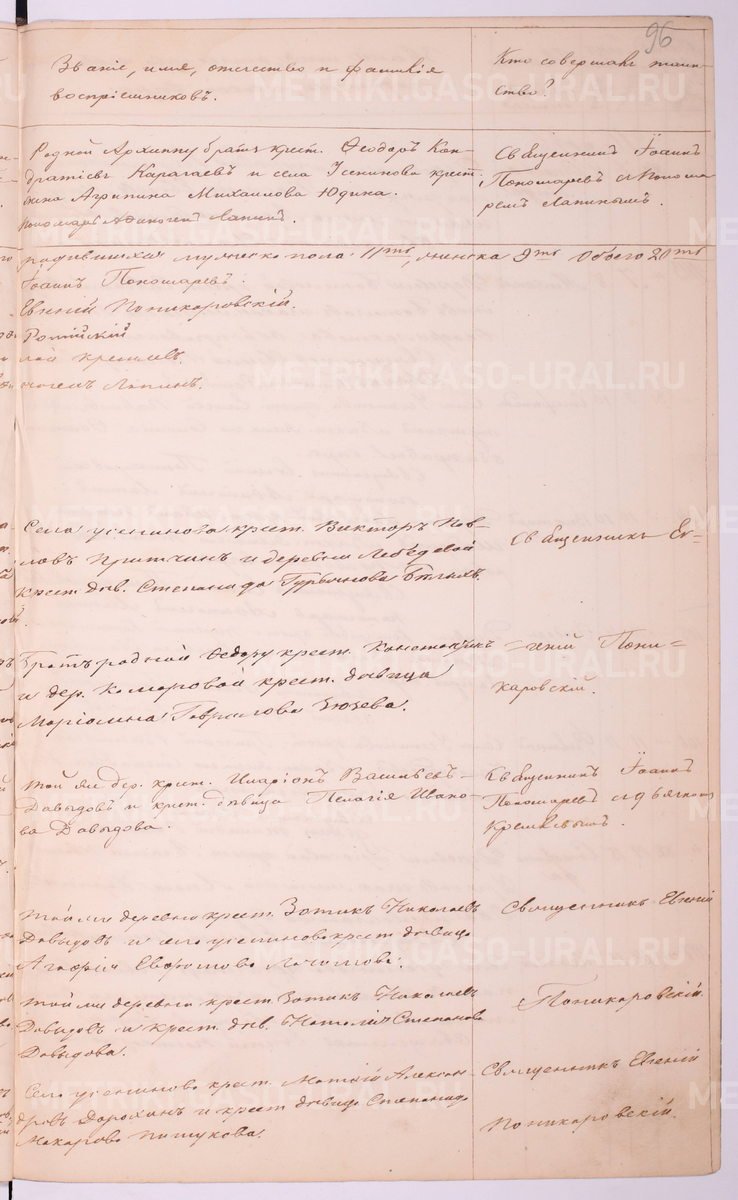 96
Званіе, имя, отчество и фамилія
воспріемниковъ.
Кто совершалъ таин-
ство?
Родной Архиппу братъ крест. Ѳеодоръ Кон-
дратіевъ Карагаевъ и села Усенинова крест.
Агрипина Михаилова Юдина.
Пономарь Лапинъ.
Священникъ Іоаннъ
Пономаревъ и Понома
ремъ Лапинымъ.
родившихся мужеска пола 11ть, женска 9ть Обоего 20ть
Іоаннъ Пономаревъ.
Евгеній Поникаровскій.
Кремлевъ.
Лапинъ.
Села Усенинова крест. Викторъ Пав-
ловъ Притчинъ и деревни Лебедевой
крест. дѣв. Степанида Гурьянова Бѣлыхъ.
Священникъ Ев-
Братъ родной Ѳедору крест. Константинъ
и дер. Комаровой крест. дѣвица
Маріамна Гаврилова Зюзева.
=геній Пони-
каровскій.
той же дер. крест. Иларіонъ Васильевъ
Давыдовъ и крест. дѣвица Пелагія Ивано-
ва Давыдова.
Священникъ Іоаннъ
Пономаревъ и дьячкомъ
Кремлевымъ.
той же деревни крест. Зотикъ Николаевъ
Давыдовъ и села усенинова крест. дѣвица
Агафія
Священникъ Евгеній
той же деревни крест. Зотикъ Николаевъ
Давыдовъ и крест. дѣв. Наталія Степанова
Давыдова.
Поникаровскій.
Села усенинова крест. Матѳій Алексан-
дровъ Дорохинъ и крест. дѣвица Степанида
Макарова Пишукова.
Священникъ Евгеній
Поникаровскій.
METRIKI.GASO-URAL.RU
METRIKI.GASO-URAL.RU
METRIKI.GASO-URAL.RU
METRIKI.GASO-URAL.RU